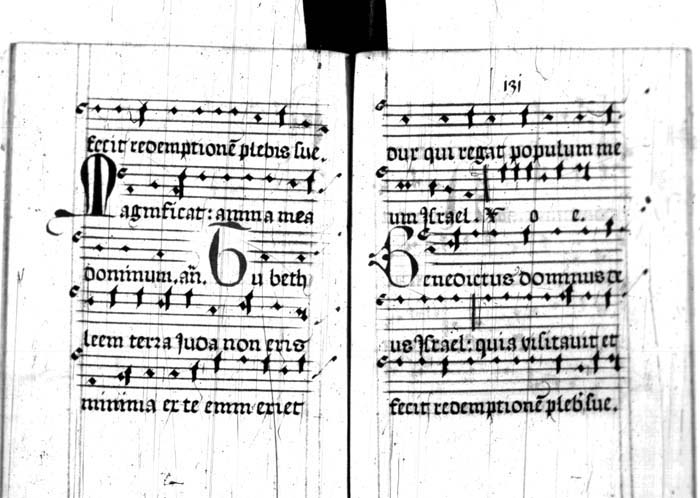 fecit redemptionē plebis sue.
Magnificat: anima mea
dominum. añ. Tu beth
leem terra Juda non eris
minima ex te enim exiet
131
dux qui regat populum me
um Israel. o e.
Benedictus dominus de
us Israel: quia visitavit et
fecit redemptionē pleb sue.